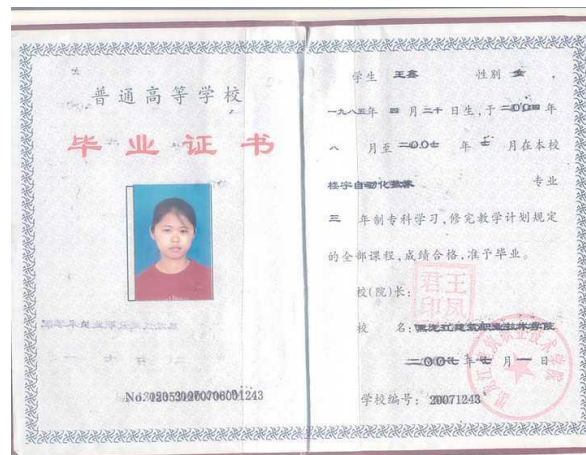 普通高等学校
毕业证书
学生 王鑫 性别 女,
一九八五年 四 月 二十 日生,于 二〇〇四 年
八 月至 二〇〇七 年 七 月在本校
楼宇自动化技术 专业
三 年制专科学习,修完教学计划规定
的全部课程,成绩合格,准予毕业。
校(院)长:
王凤君印
校 名: 黑龙江建筑职业技术学院
二〇〇七 年 七 月 一 日
学校编号: 20071243